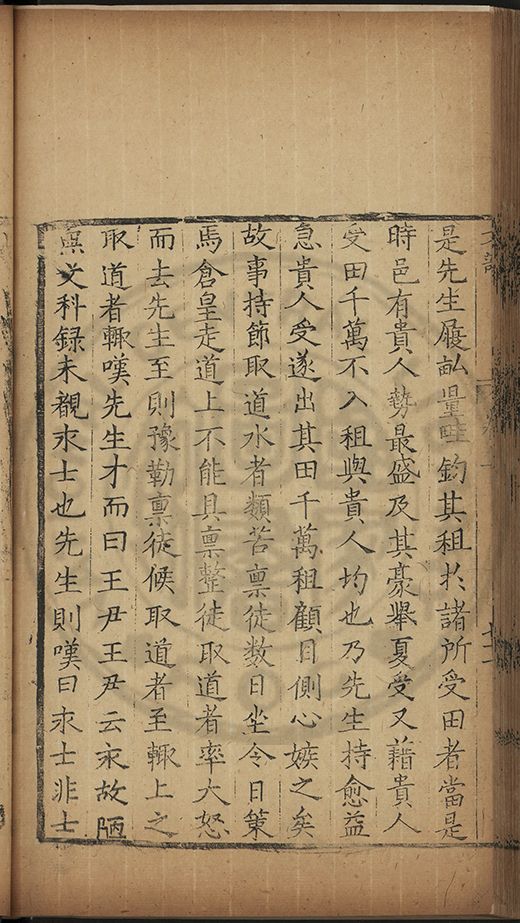 是先生履畝量畦鈞其租扵諸所受田者當是
時邑有貴人勢最盛及其豪舉夏受又藉貴人
受田千萬不入租與貴人均也乃先生持愈益
急貴人受遂出其田千萬租顧日側心嫉之矣
故事持節取道水者類苦禀徒数日坐令日箠
馬倉皇走道上不能具禀整徒取道者率大怒
而去先生至則豫勒禀徒候取道者至輙上之
取道者輙嘆先生才而曰王尹王尹云永故陋
無文科録未覩永士也先生則嘆曰永士非士